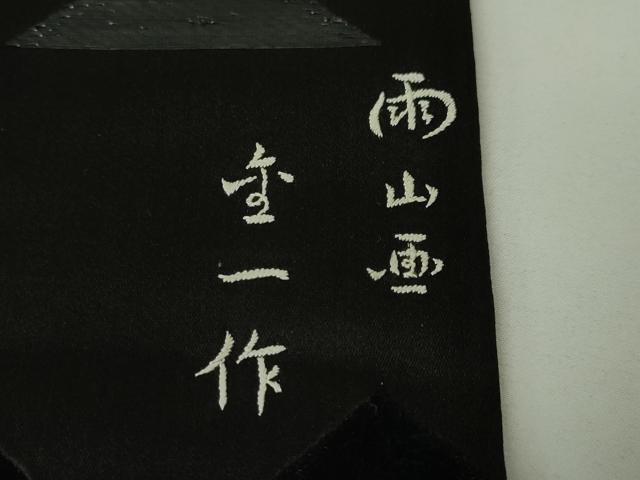 雨山画
金一作